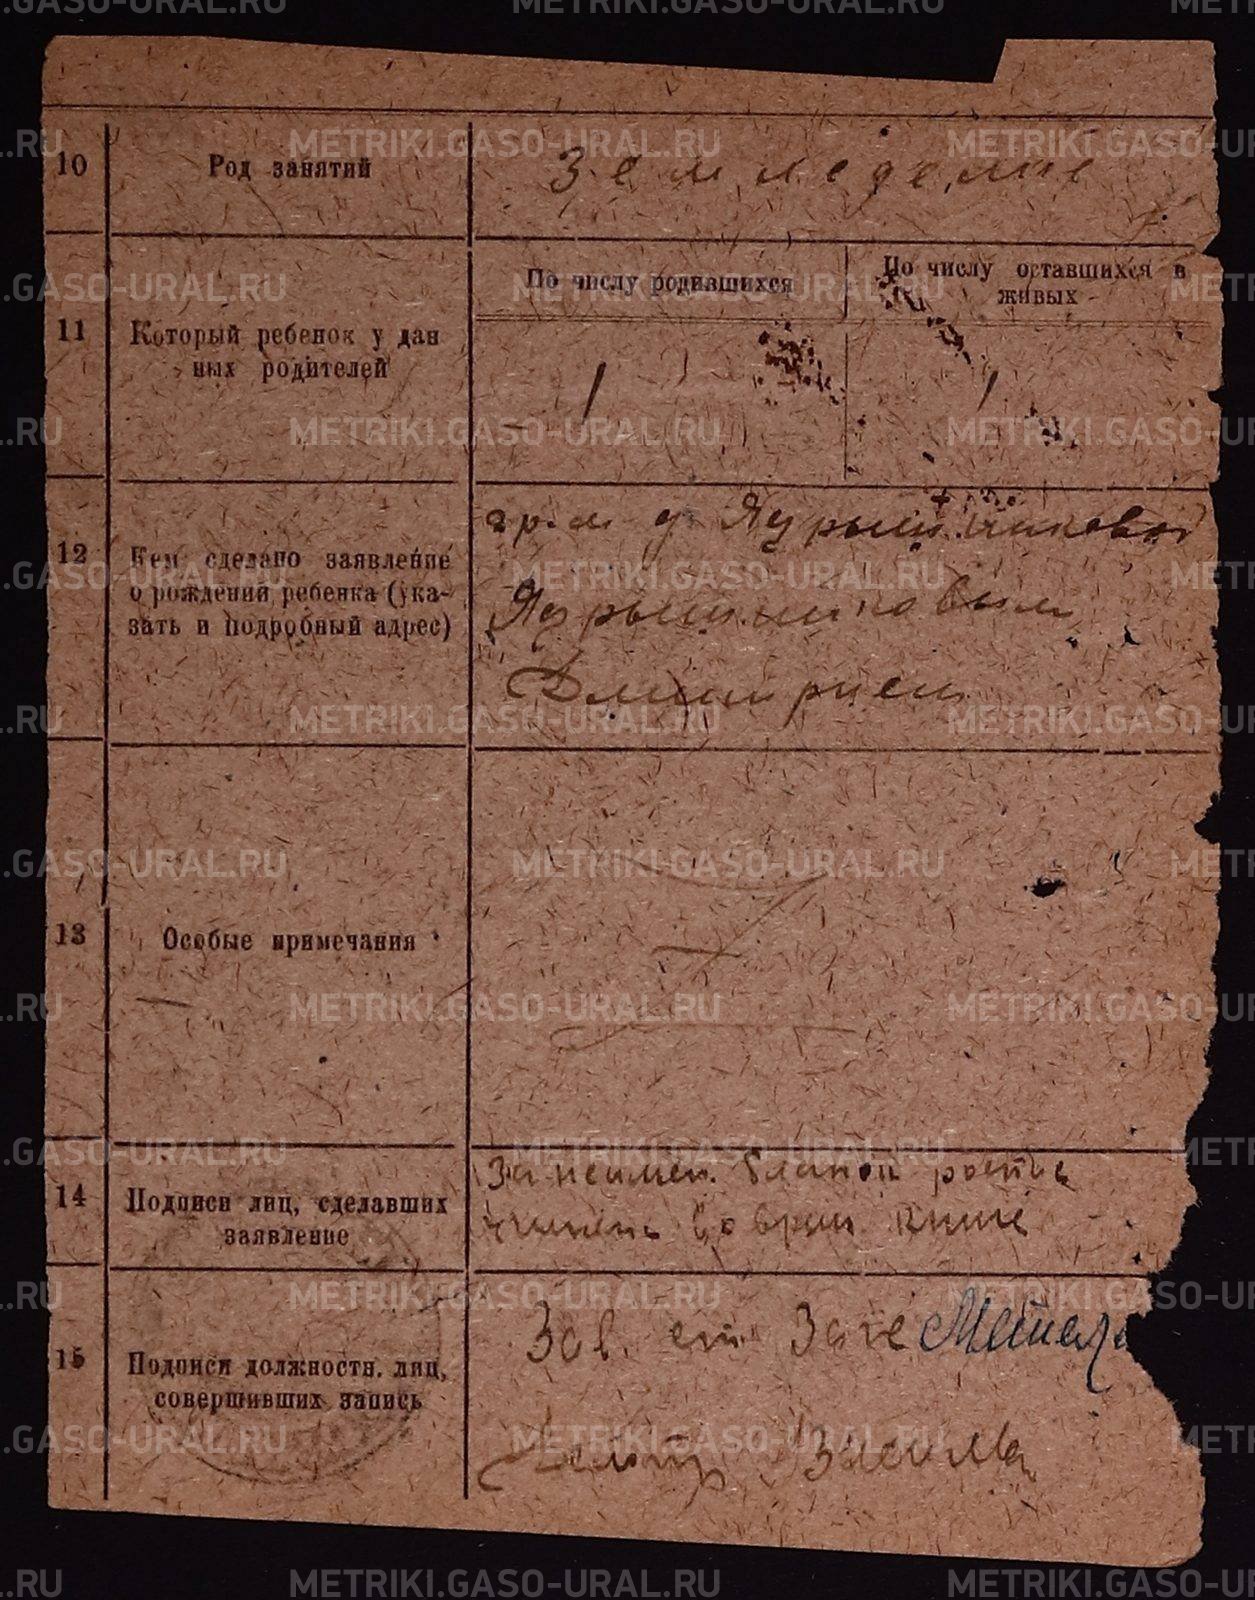 10
Род занятий
Земледелие
11
Который ребенок у дан
ных родителей
По числу родившихся
По числу оставшихся в
живых
1
1
12
Кем сделано заявление
о рождении ребенка (ука-
зать и подробный адрес)
гр-м д Ядрышниковой
Ядрышниковым
Дмитрием
13
Особые примечания
14
Подписи лиц, сделавших
заявление
За неимен. бланок
книге
15
Подписи должностн. лиц,
совершивших запись
Зав. ст. Загс
METRIKI.GASO-URAL.RU